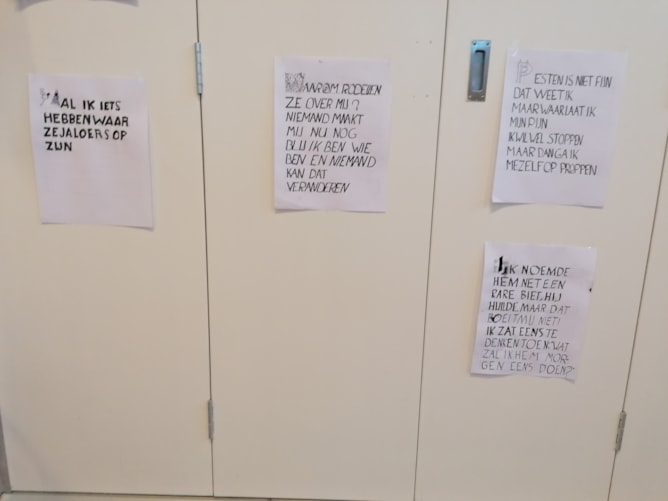 ZAL IK IETS
HEBBEN WAAR
ZE JALOERS OP
ZIJN
WAAROM RODELEN
ZE OVER MIJ?
NIEMAND MAAKT
MIJ NU NOG
BLIJ IK BEN WIE
BEN EN NIEMAND
KAN DAT
VERANDEREN
PESTEN IS NIET FIJN
DAT WEET IK
MAAR WAAR LAAT IK
MIJN PIJN
IK WIL WEL STOPPEN
MAAR DAN GA IK
MEZELF OP PROPPEN
IK NOEMDE
HEM NET EEN
RARE BIET, HIJ
HUILDE MAAR DAT
BOEIT MIJ NIET!
IK ZAT EENS TE
DENKEN TOEN: WAT
ZAL IK HEM MOR-
GEN EENS DOEN?